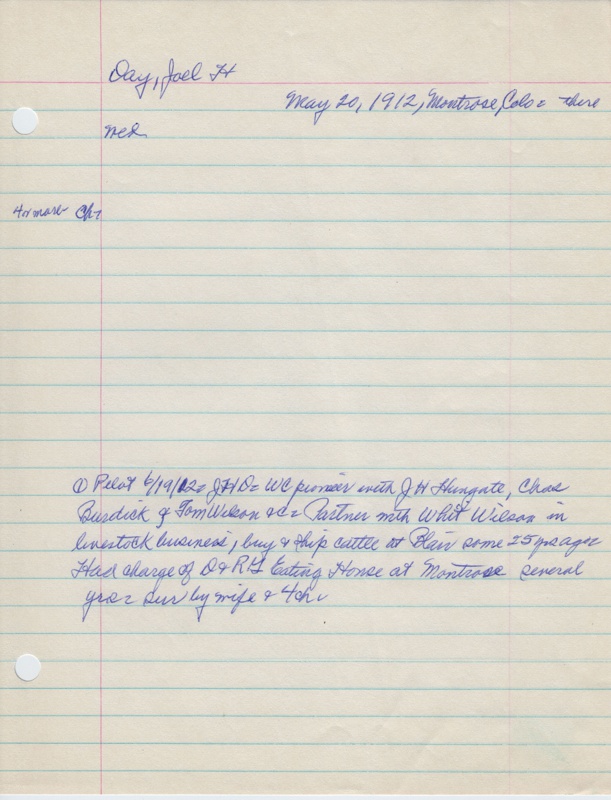 Day, Joel H
May 20, 1912, Montrose, Colo = there
med
4 or more Ch-
① Pilot 6/19/12 = JHD = WC pioneer with J H Hungate, Chas
Burdick & Tom Wilson &c = Partner with Whit Wilson in
livestock business, buy & ship cattle at Blair some 25 yrs ago =
Had charge of D & RG Eating House at Montrose several
yrs = sur by wife & 4 ch.